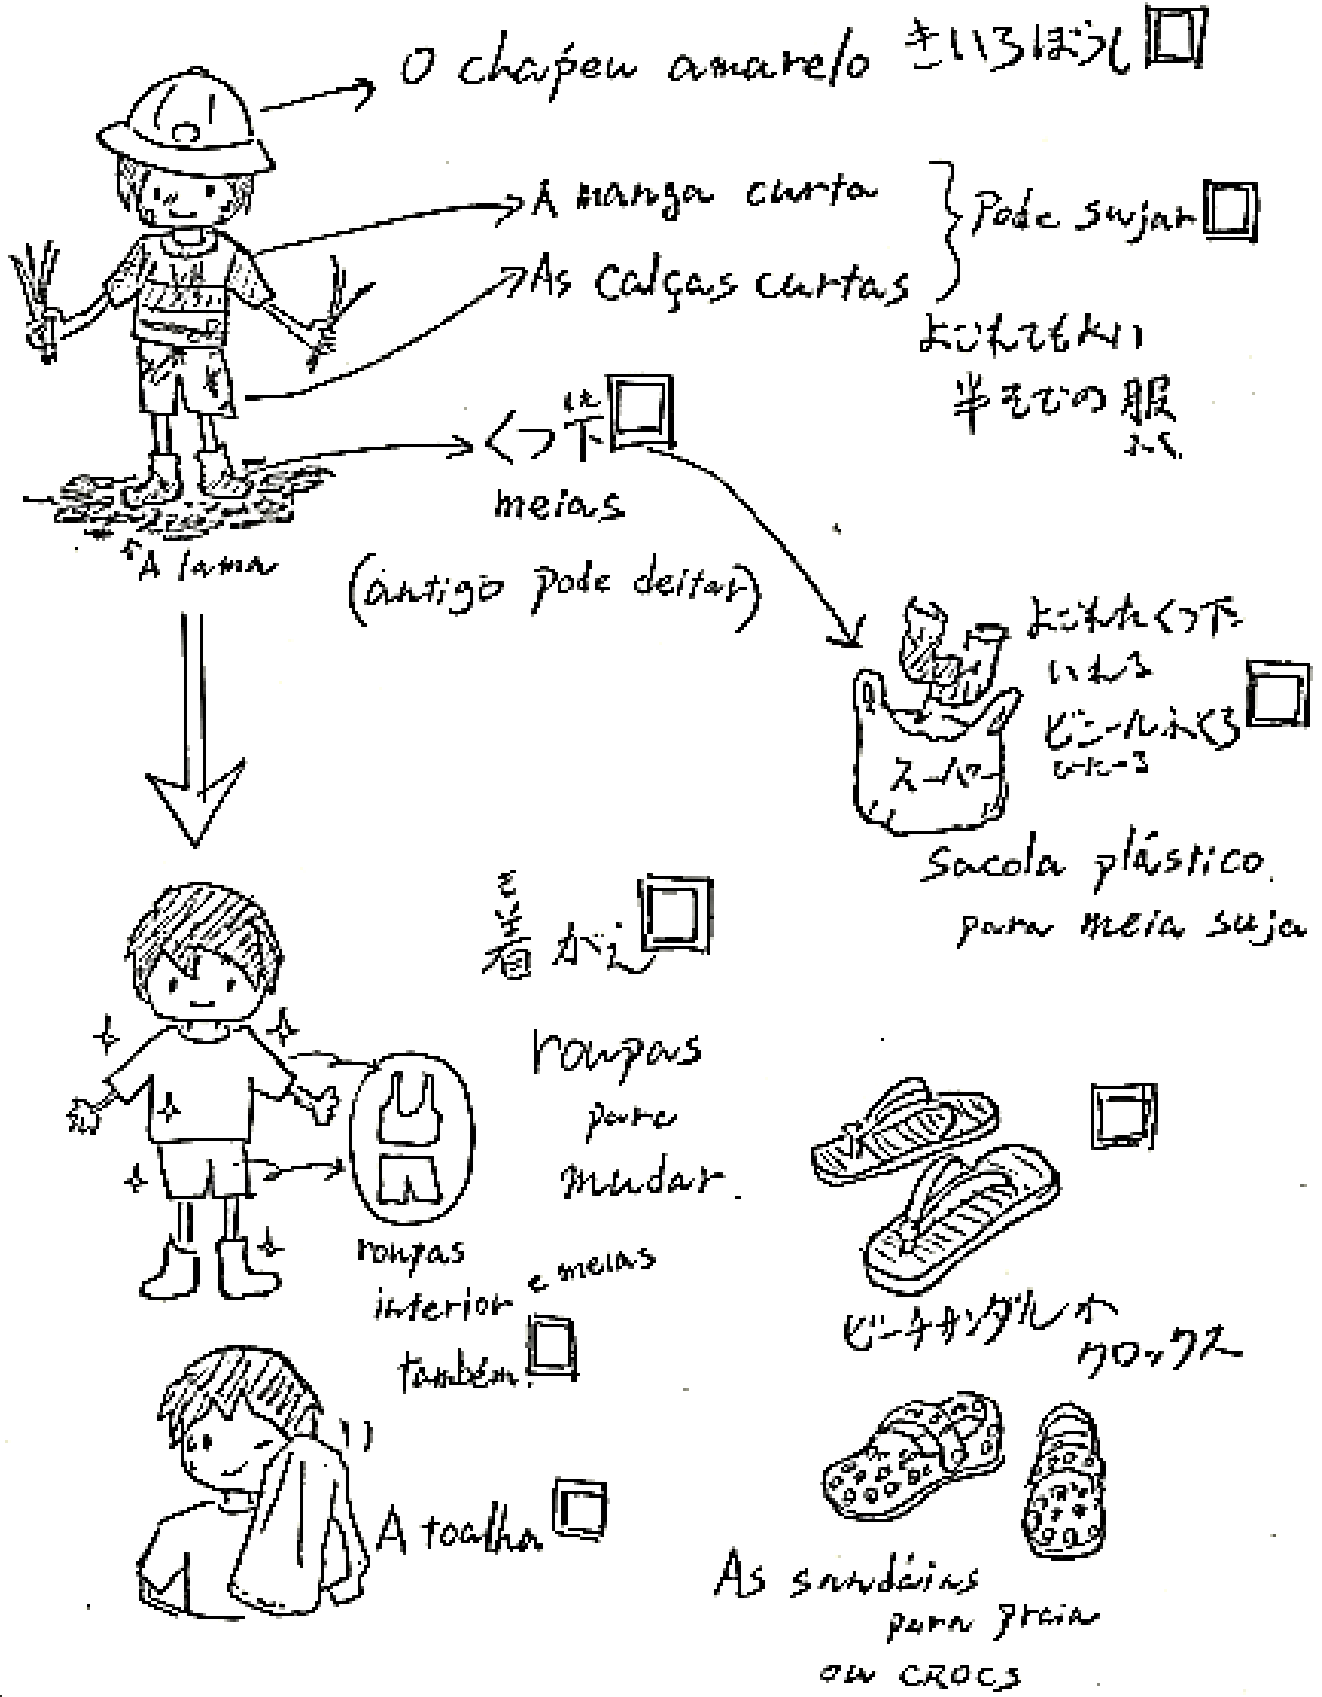 O chapéu amarelo きいろぼうし
A manga curta
As calças curtas
Pode sujar
よごれてもよい
半そでの服
ふく
くつ下
した
meias
(antigo pode deitar)
A lama
よごれたくつ下
いれる
ビニールふくろ
スーパー
sacola plástico
para meia suja
き
着がえ
roupas
para
mudar.
roupas
interior e meias
também.
ビーチサンダルか
クロックス
A toalha
As sandáias
para praia
ou CROCS